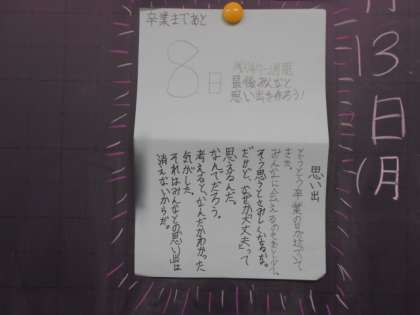 卒業まであと
8日
残り一週間
最後みんなと
思い出を作ろう！
思い出
とうとう卒業の日が近づいて
きた。
みんなに会えるのもあと少し。
そう思うとさみしくなるな。
だけど、なぜか「大丈夫」って
思えるんだ。
なんでだろう。
考えると、なんだかわかった
気がした。
それはみんなとの「思い出」は
消えないからだ。
月13日(月